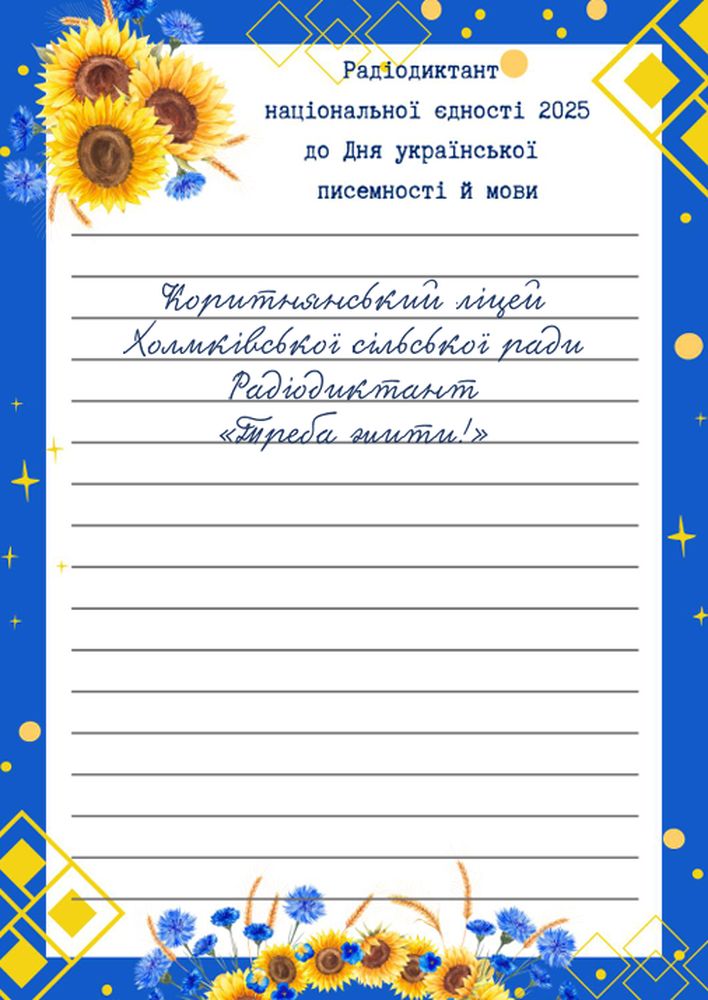 Радіодиктант
національної єдності 2025
до Дня української
писемності й мови
Коритнянський ліцей
Холмківської сільської ради
Радіодиктант
«Треба жити!»